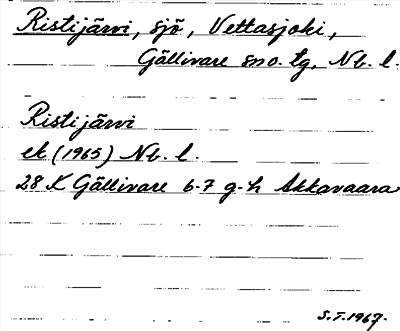 Ristijärvi, sjö, Vettasjoki,
Gällivare sno. tg, Nb. l.
Ristijärvi
ek (1965) Nb. l.
28 K Gällivare 6-7 g-h Akkavaara
S.T.1967.